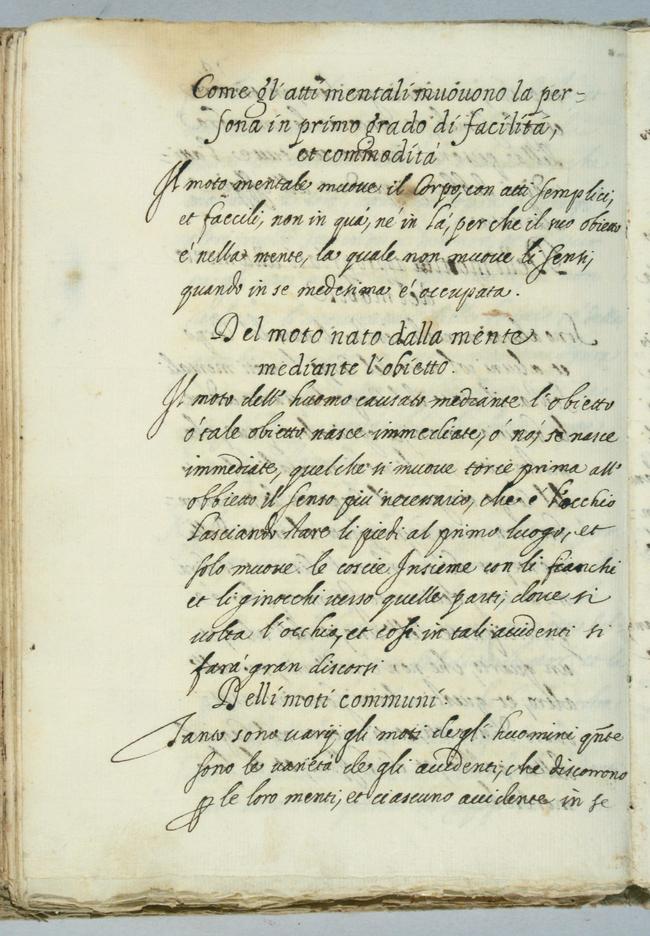 Come gl'atti mentali muouono la per=
sona in primo grado di facilità,
et commodità
Il moto mentale muoue il Corpo, con atti semplici,
et faecili, non in quà, ne' in là, perche il suo obietto
e' nella mente, la quale non muoue li sensi,
quando in se medesima e' occupata.
Del moto nato dalla mente
mediante l'obietto.
Il moto dell'huomo causato mediante l'obietto
ò tale obietto nasce immediate, ò nò, se nasce
immediate, quel che si muoue torcie prima all'
obbietto il senso più necessario, che e l'occhio
lasciando stare li piedi al primo luogo, et
solo muoue le coscie Insieme con li fianchi
et li ginocchi uerso quelle parti, doue si
uolta l'occhio, et così in tali accidenti si
farà gran discorsi
Delli moti communi
Tanto sono uarij gli moti de gl' huomini qnte
sono le uarietà de gli accidenti, che discorrono
ꝑ le loro menti, et ciascuno accidente in se